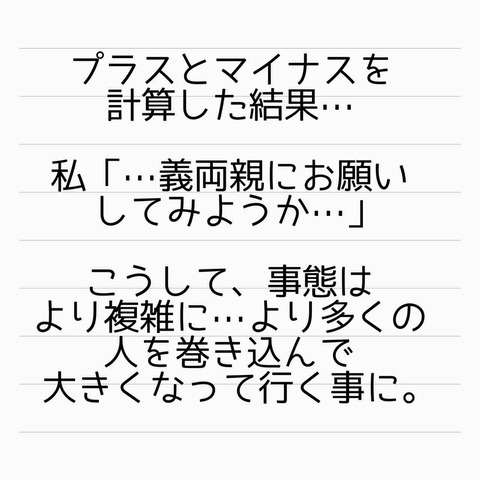 プラスとマイナスを
計算した結果…
私「…義両親にお願い
してみようか…」
こうして、事態は
より複雑に…より多くの
人を巻き込んで
大きくなって行く事に。